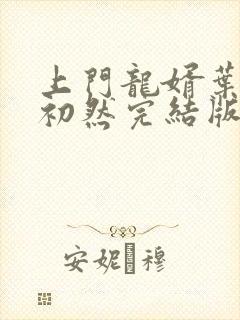 上門龍婿葉
初然完結版
安妮穆